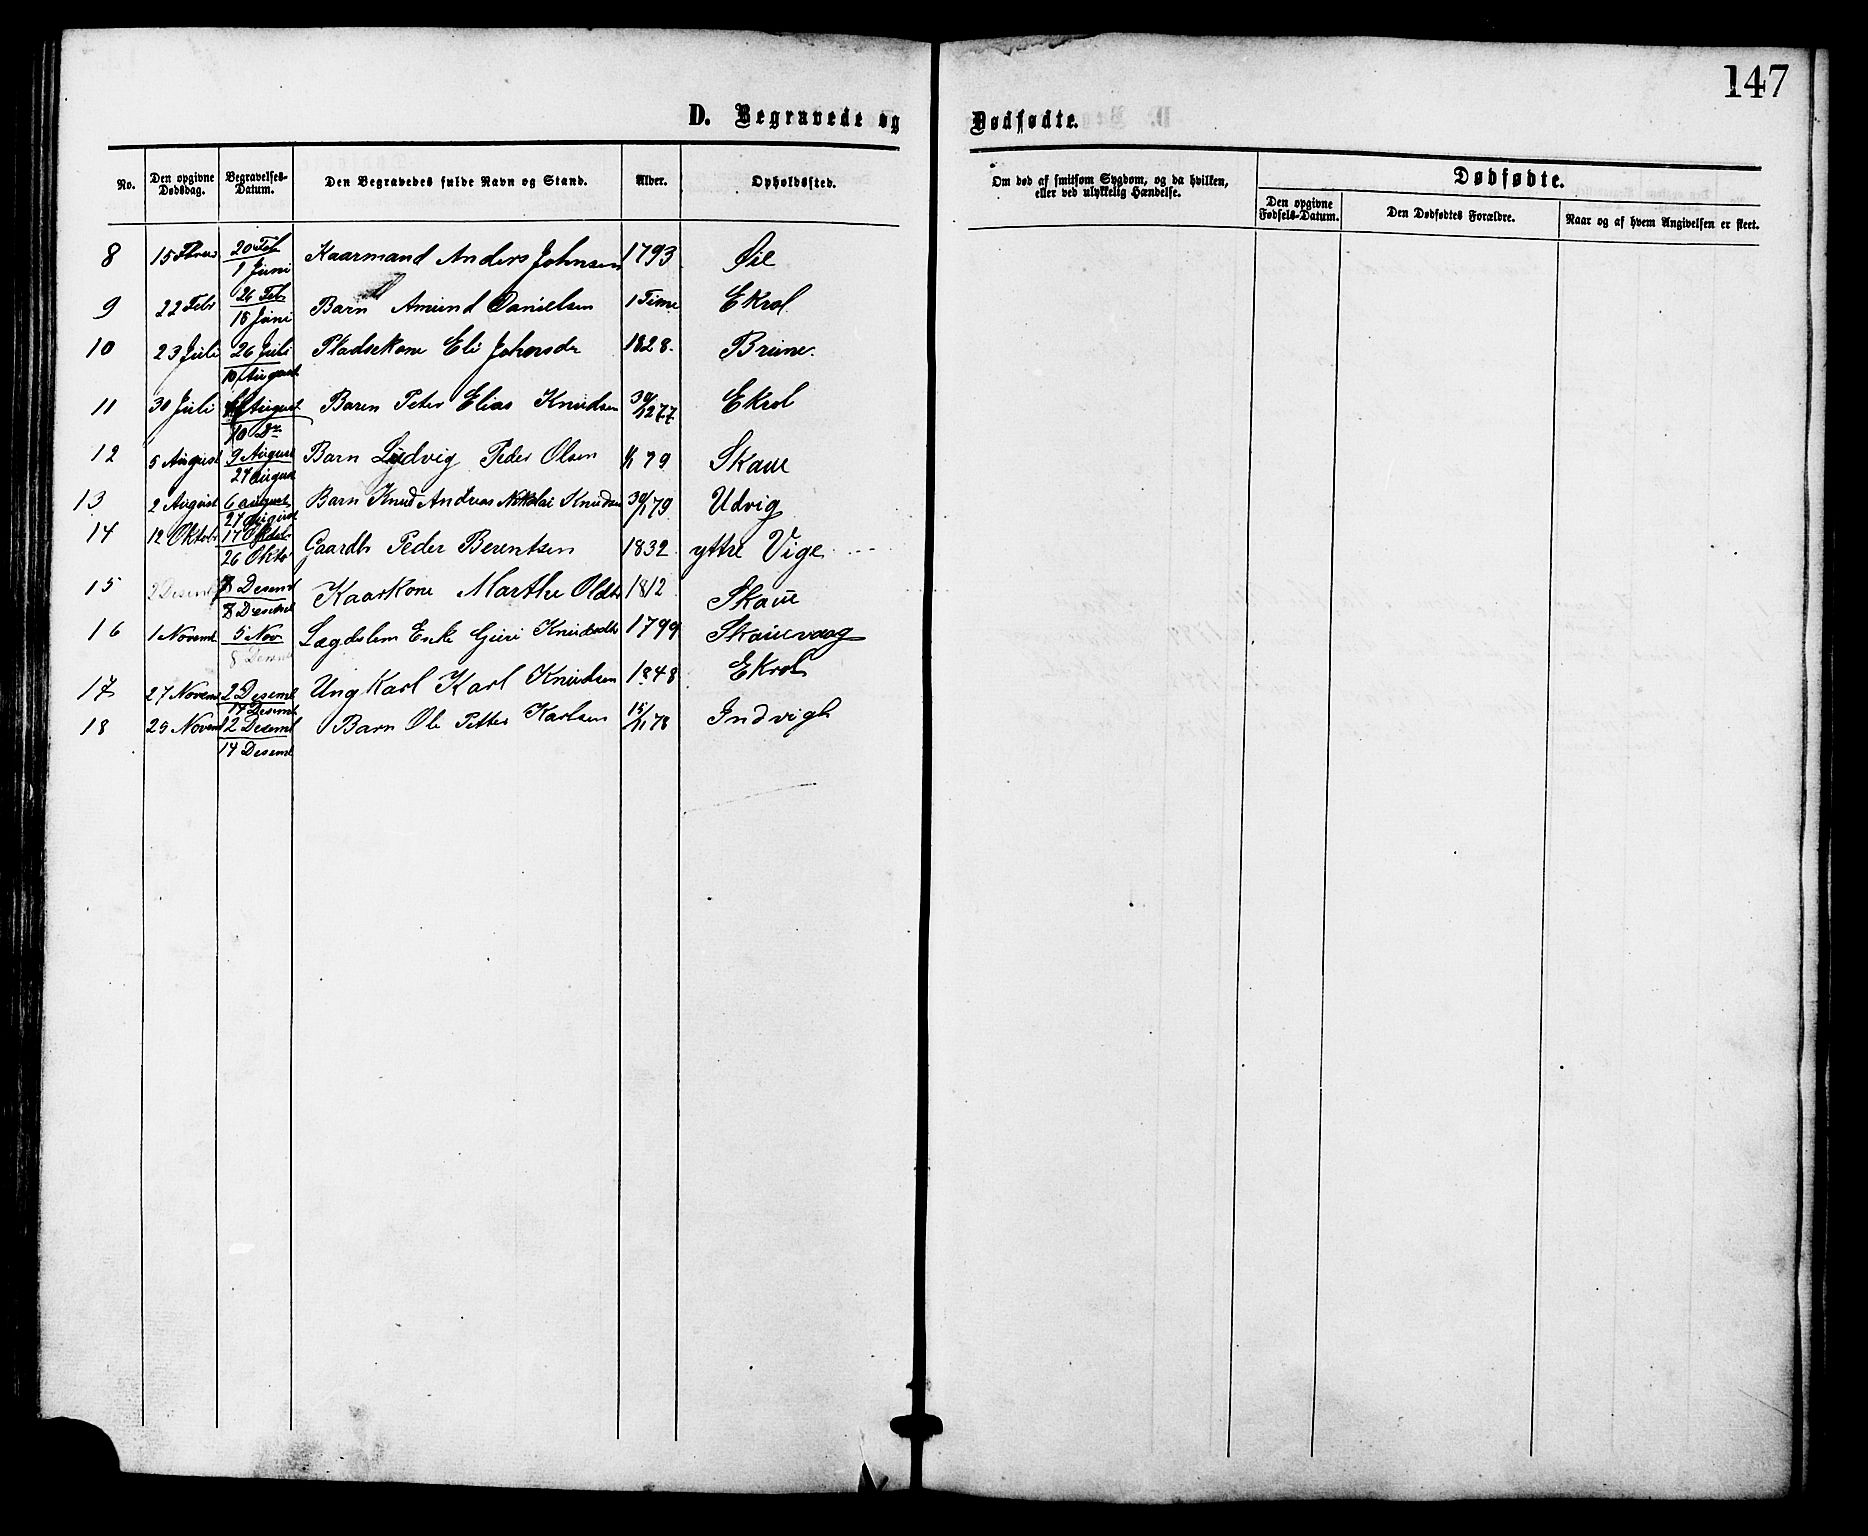 147
D. Begravede og Dødfødte.
No. Den opgivne Dødsdag. Begravelses-Datum. Den Begravedes fulde Navn og Stand. Alder. Opholdssted.
Om død af smitsom Sygdom, og da hvilken, eller ved ulykkelig Hændelse.
Dødfødte.
Den opgivne Fødsels-Datum. Den Dødfødtes Forældre. Naar og af hvem Angivelsen er skeet.
8 15 20 Feb 1 Juni Kaarmand Anders Johnsen 1793 Øie
9 22 Febr 26 Feb 18 Juni Barn Amund Danielsen 1 Time Ekrol
10 23 Juli 26 Juli 10 August Pladsekone Eli Johnsdr 1828. Brune.
11 30 Juli August 10 Do Baren Peter Elias Knudsen 30/12 77 Ekrol
12 5 August 9 August 27 August Barn Ludvig Peder Olsen 79 Skaue
13 2 August 6 august 27 August Barn Knud Andreas Nikolai Knudsen 30/1 79 Udvig
14 12 Oktob 17 Oktob 26 Okto Gaardb Peder Berentsen 1832 yttre Vige
15 Desemb 8 Desemb 8 Desemb Kaarkone Marthe Oldtr 1812 Skaue
16 1 Novemb 5 Nov 8 Desemb Lægdslem Enke Guri Knudsdtr 1799 Skauevaag
17 27 Novem 2 Desemb 14 Desemb Ungkarl Karl Knudsen 1848 Ekrol
18 25 Novem 12 Desemb 14 Desemb Barn Ole Petter Karlsen 15/11 78 Indvigh